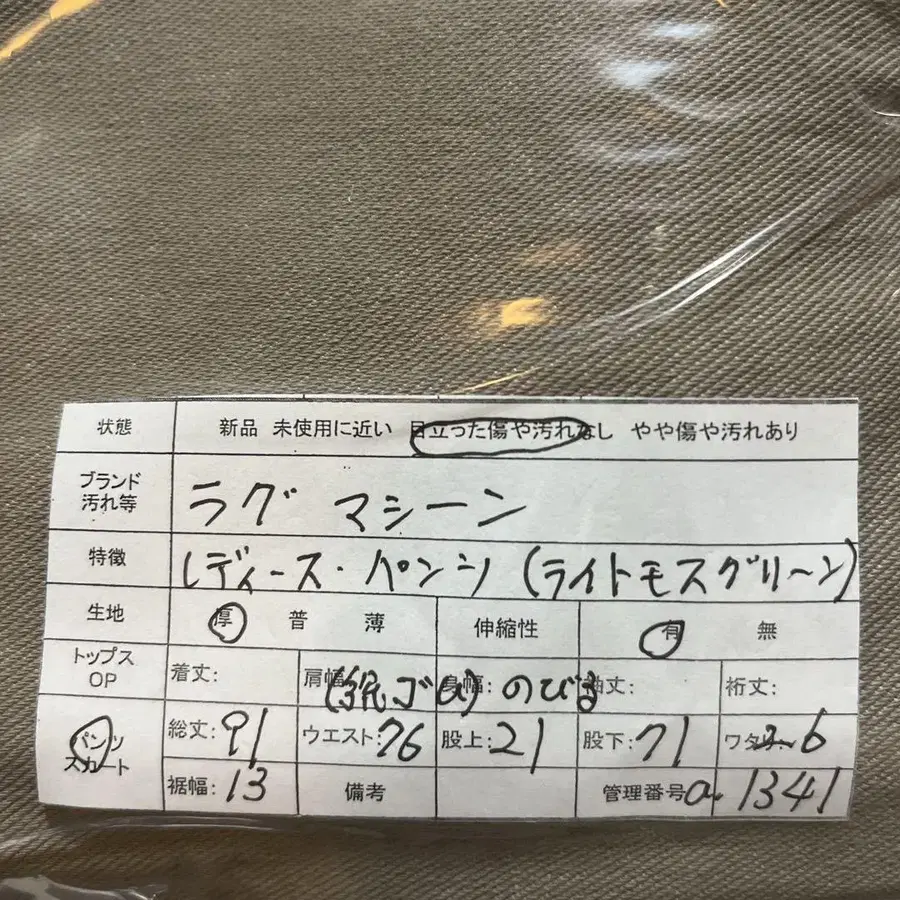 状態 新品 未使用に近い 目立った傷や汚れなし やや傷や汚れあり
ブランド
汚れ等
ラグ マシーン
特徴 レディース・パンツ (ライトモスグリーン)
生地 厚 普 薄 伸縮性 有 無
トップス
OP
着丈: 肩幅 身幅: 袖丈: 裄丈:
ゴム) のびる
パンツ
スカート
総丈: 91 ウエスト: 76 股上: 21 股下: 71 ワタリ: 26
裾幅: 13 備考 管理番号 a 1341